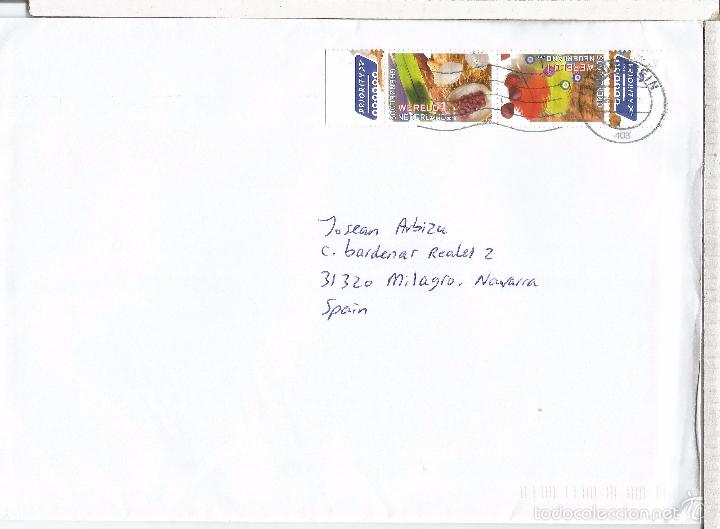 PRIORITY
WERELD 1
NEDERLAND
WERELD 1
NEDERLAND
PRIORITY
Josean Arbizu
c. bardenar Reales 2
31320 Milagro. Navarra
Spain
todocoleccion.net